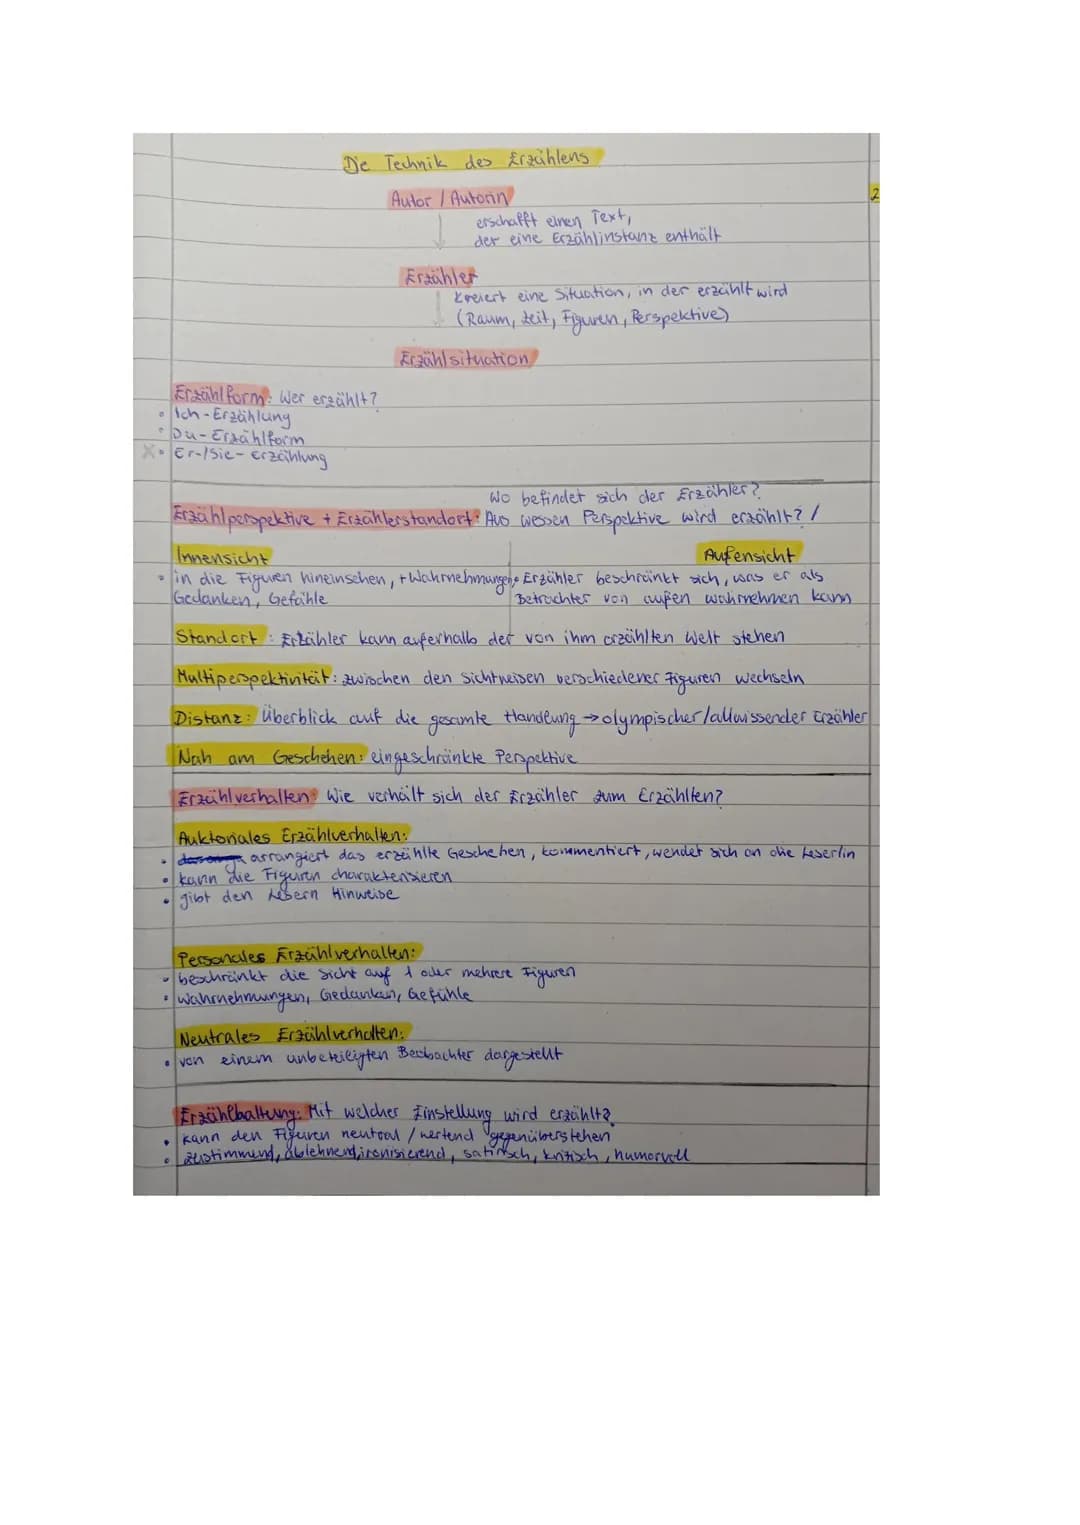 Die Technik des Erzählens
Autor / Autorin
2
erschafft einen Text,
der eine Erzählinstanz enthält
Erzähler
kreiert eine Situation, in der erzählt wird
(Raum, Zeit, Figuren, Perspektive)
Erzählsituation
Erzählform: Wer erzählt?
• Ich-Erzählung
• Du-Erzählform
X • Er-/Sie-Erzählung
Wo befindet sich der Erzähler?
Erzählperspektive + Erzählerstandort: Aus wessen Perspektive wird erzählt? /
Innensicht Außensicht
• in die Figuren hineinsehen, + Wahrnehmungen, • Erzähler beschränkt sich, was er als
Gedanken, Gefühle Betrachter von außen wahrnehmen kann
Standort: Erzähler kann außerhalb der von ihm erzählten Welt stehen
Multiperspektivität: zwischen den Sichtweisen verschiedener Figuren wechseln
Distanz: Überblick auf die gesamte Handlung → olympischer/allwissender Erzähler
Nah am Geschehen: eingeschränkte Perspektive
Erzählverhalten: Wie verhält sich der Erzähler zum Erzählten?
Auktoriales Erzählverhalten:
• arrangiert das erzählte Geschehen, kommentiert, wendet sich an die Leserin
• kann die Figuren charakterisieren
• gibt den Lesern Hinweise
Personales Erzählverhalten:
• beschränkt die Sicht auf 1 oder mehrere Figuren
• Wahrnehmungen, Gedanken, Gefühle
Neutrales Erzählverhalten:
• von einem unbeteiligten Beobachter dargestellt
Erzählhaltung: Mit welcher Einstellung wird erzählt?
• kann den Figuren neutral / wertend gegenüberstehen
• zustimmend, ablehnend, ironisierend, satirisch, kritisch, humorvoll